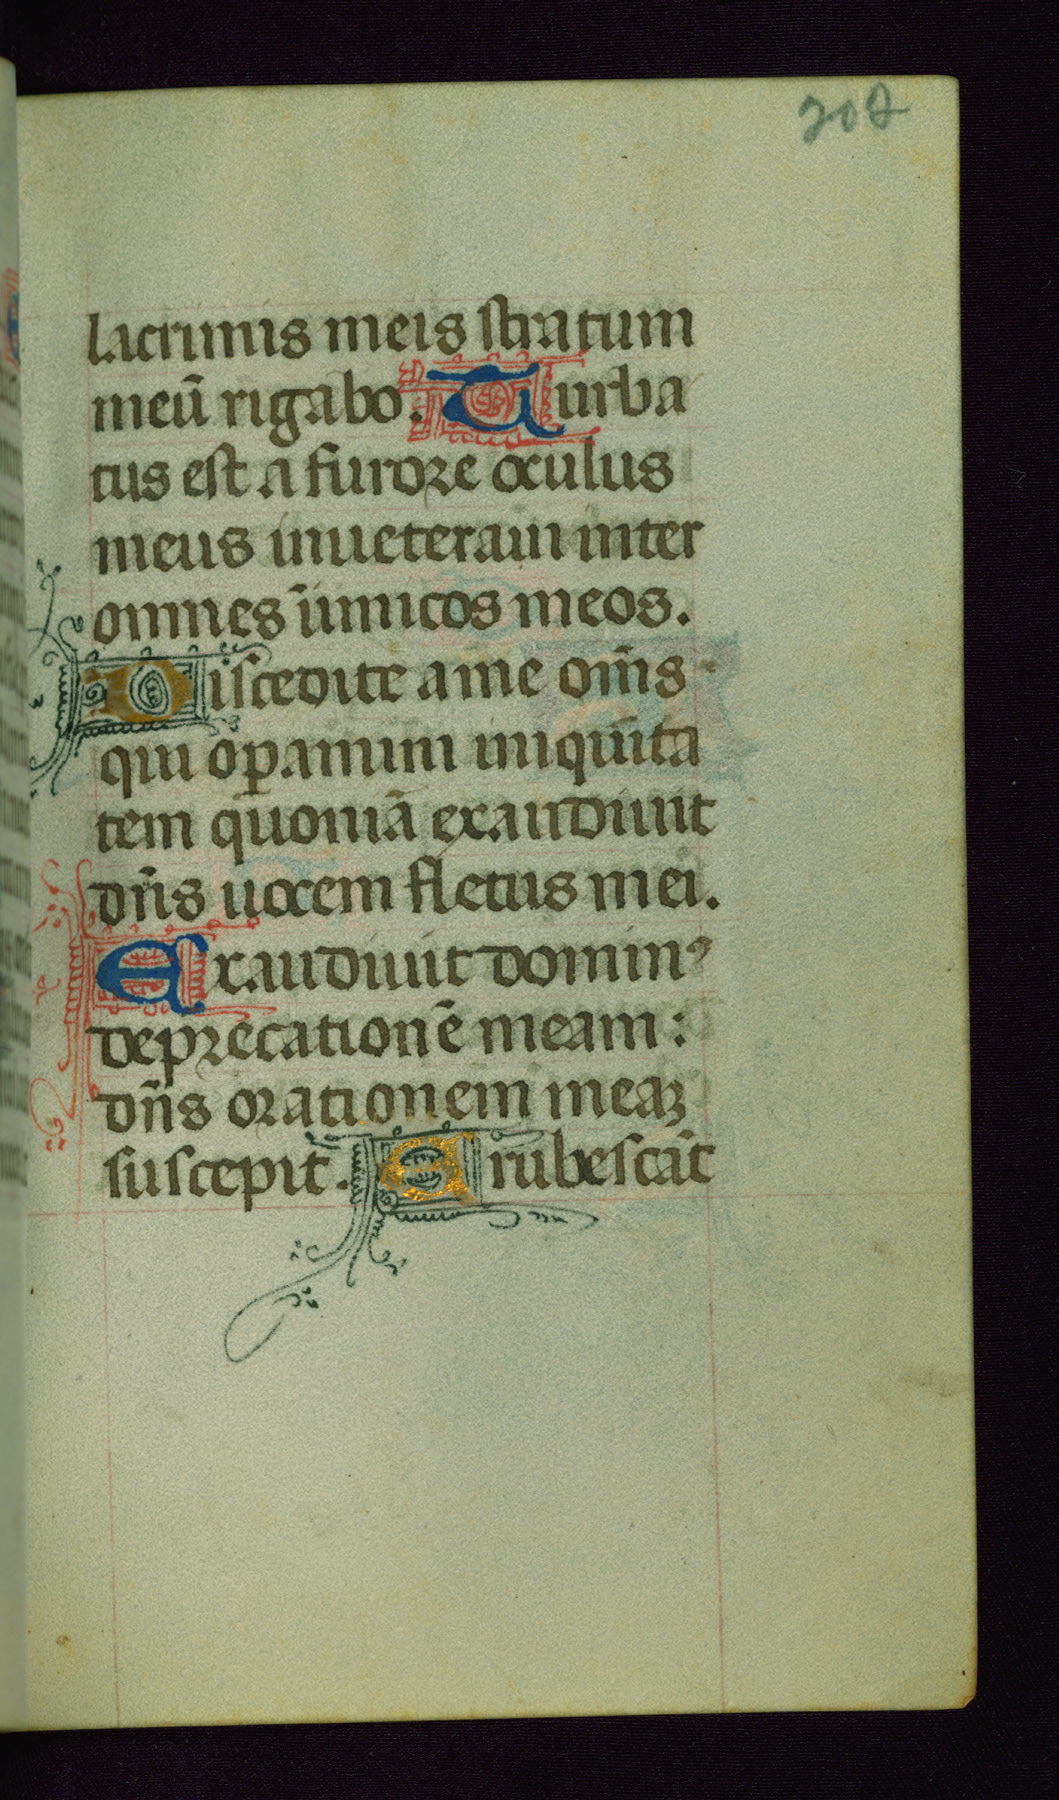 202
lacrimis meis stratum
meū rigabo. Turba
tus est a furore oculus
meus inueteraui inter
omnes inimicos meos.
Discedite a me om̄s
qui oꝑamini iniquita
tem quoniā exaudiuit
dn̄s uocem fletus mei.
Exaudiuit dominꝰ
deprecationē meam:
dn̄s orationem meaꝫ
suscepit. Erubescāt